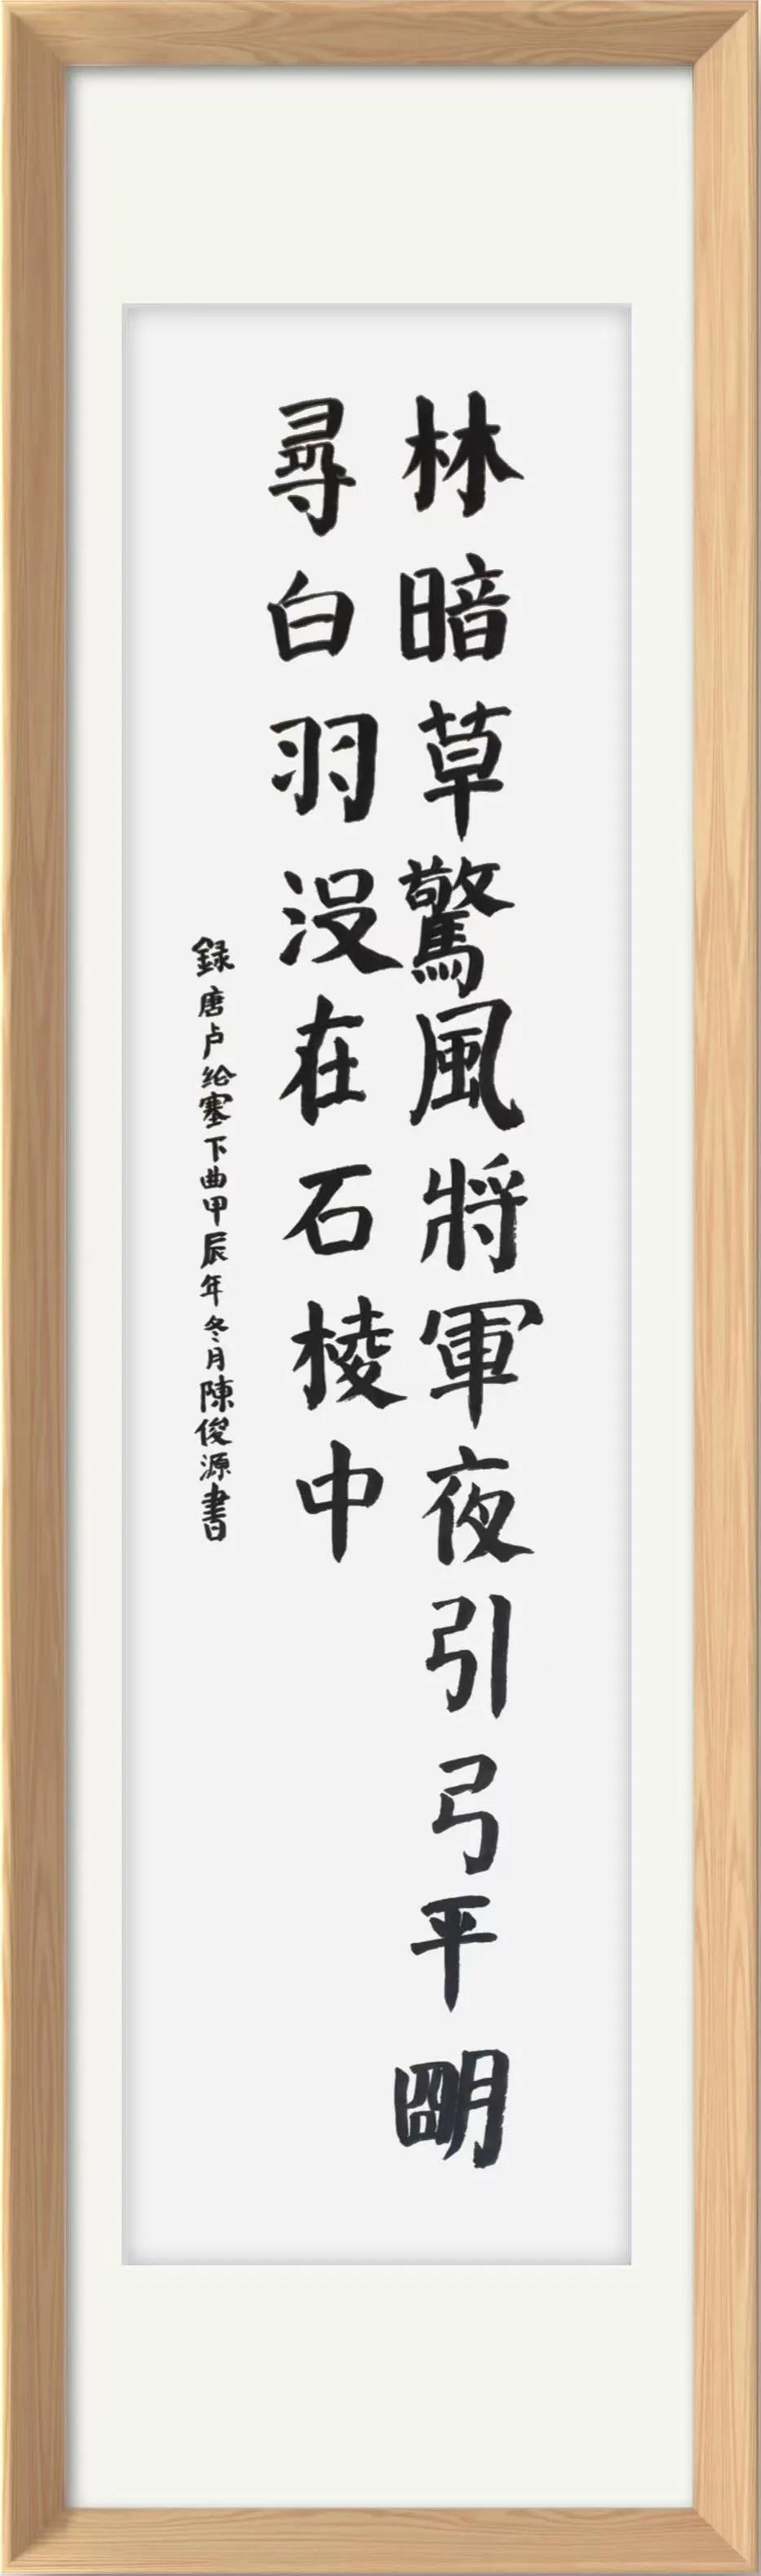 林暗草驚風將軍夜引弓平明
尋白羽没在石棱中
録唐卢给塞下曲甲辰年冬月陳俊源書